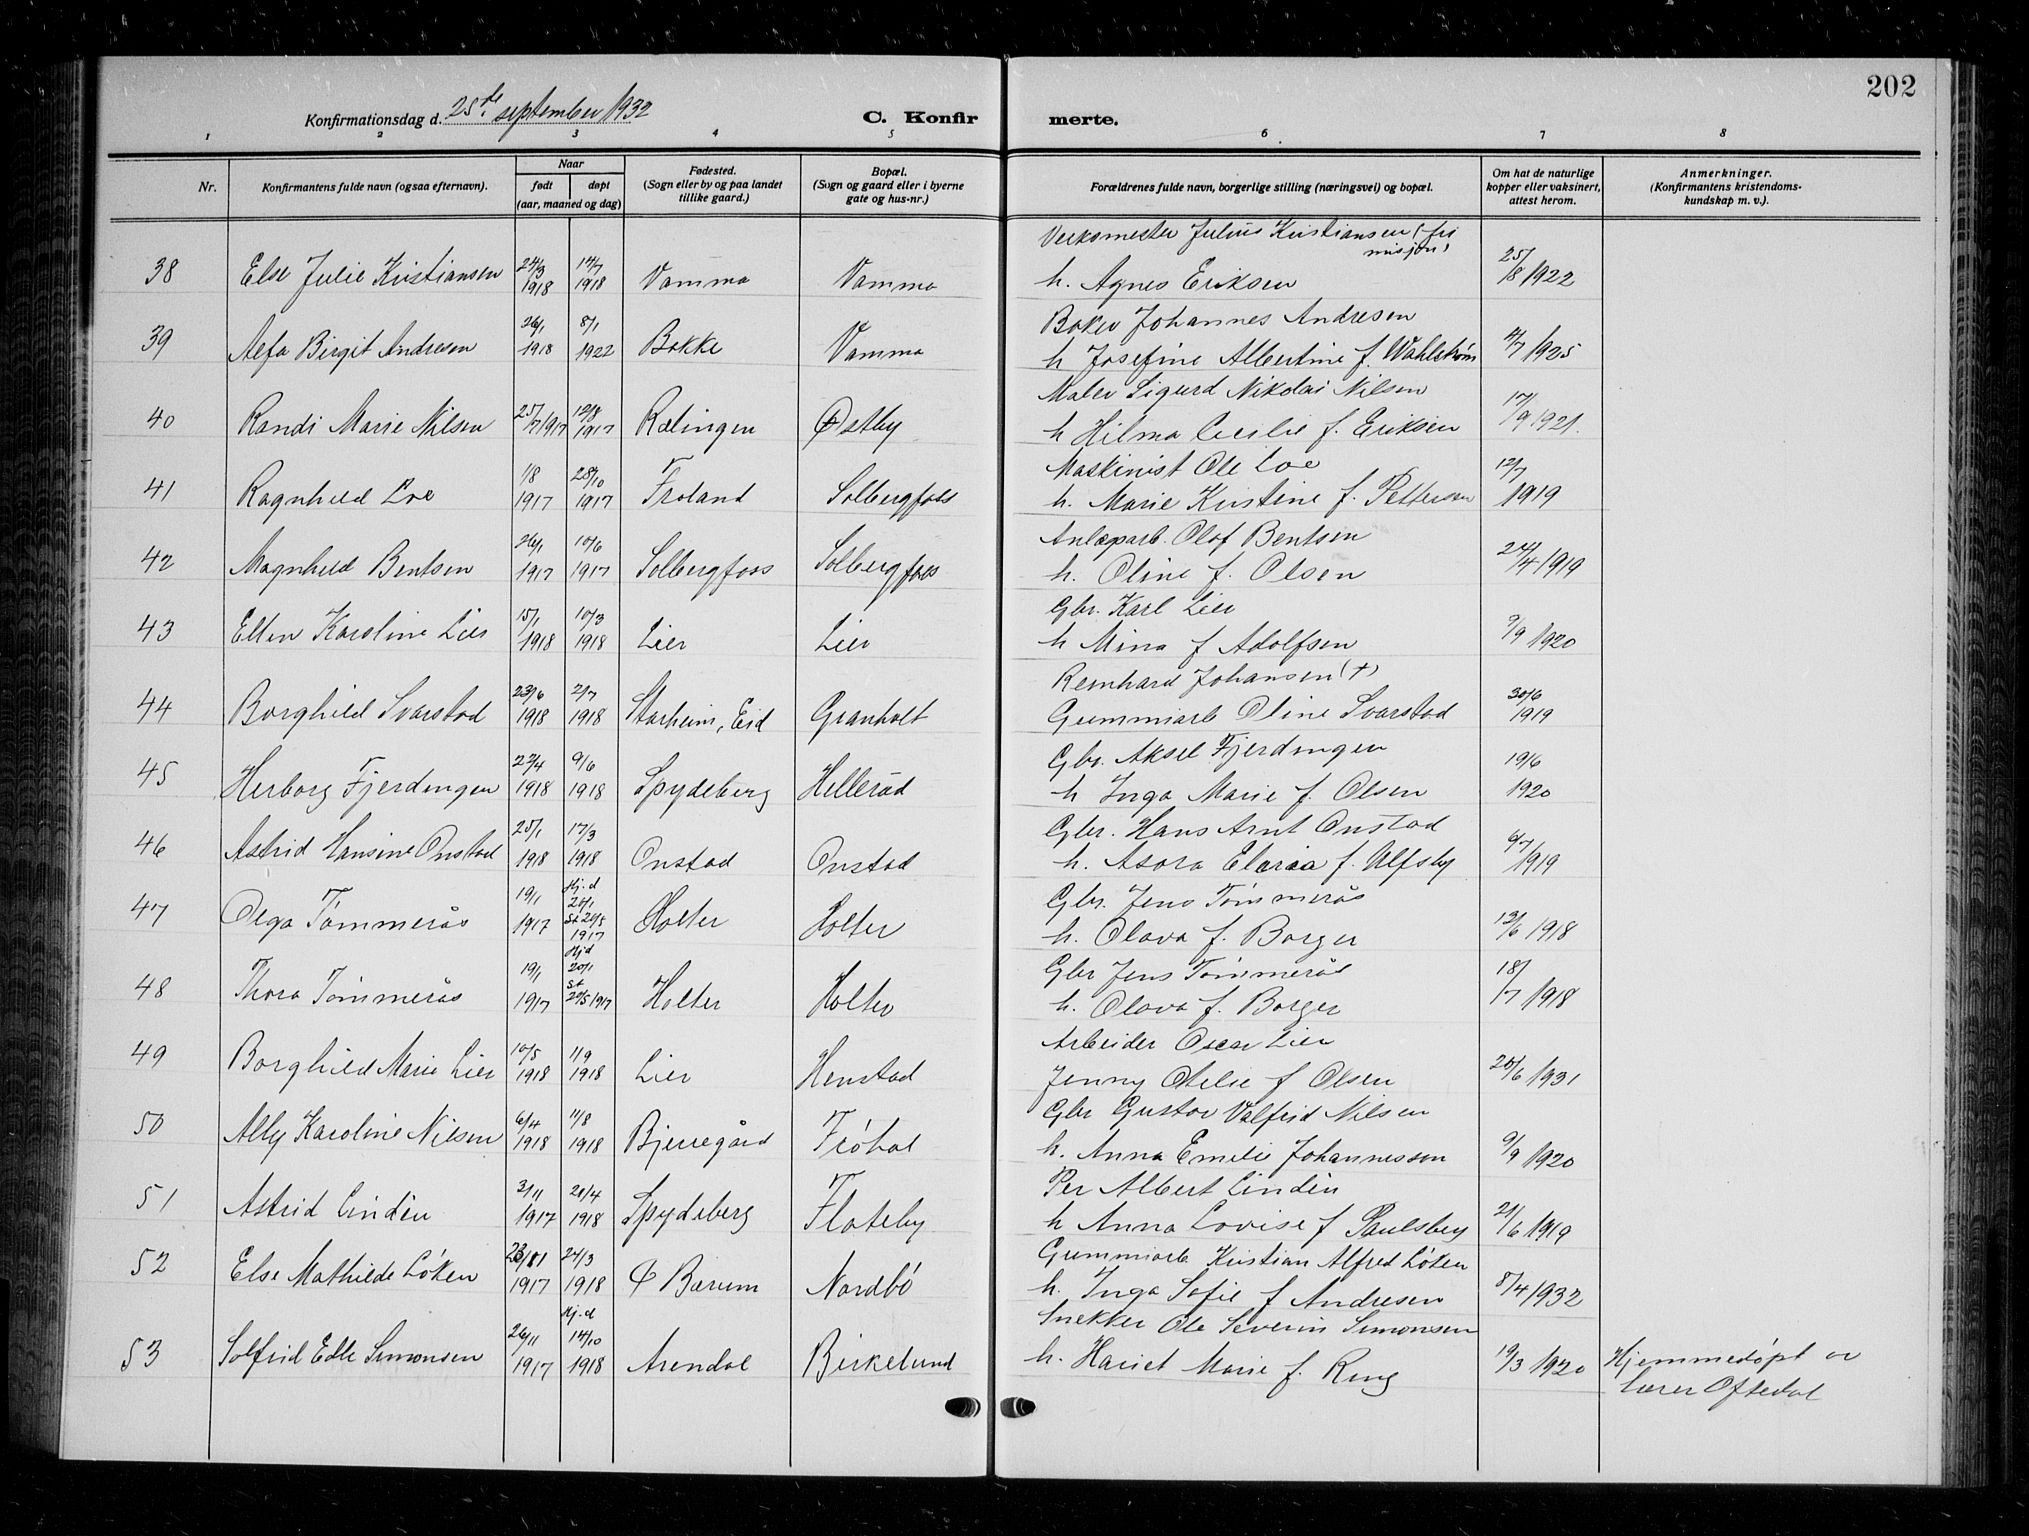 202
Konfirmationsdag d. 25de september 1932
C. Konfirmerte.
1 2 3 4 5 6 7 8
Nr. Konfirmantens fulde navn (ogsaa efternavn). Naar født døpt (aar, maaned og dag) Fødested. (Sogn eller by og paa landet tillike gaard.) Bopæl. (Sogn og gaard eller i byerne gate og hus-nr.) Forældrenes fulde navn, borgerlige stilling (næringsvei) og bopæl. Om hat de naturlige kopper eller vaksinert, attest herom. Anmerkninger. (Konfirmantens kristendomskundskap m. v.).
Verksmester Julius Kristiansen (fri misjon)
38 Else Julie Kristiansen 24/3 1918 14/7 1918 Vamma Vamma h. Agnes Eriksen 25/8 1922
Baker Johannes Andresen
39 Alfa Birgit Andresen 26/1 1918 8/1 1922 Bakke Vamma h Josefine Albertine f. Wahlstrøm 4/7 1925
Maler Sigurd Nikolai Nilsen
40 Randi Marie Nilsen 25/7 1917 12/8 1917 Rælingen Østby h Hilma Cecilie f. Eriksen 17/9 1921.
Maskinist Ole Loe
41 Ragnhild Loe 1/8 1917 28/10 1917 Froland Solbergfoss h. Marie Kristine f. Pettersen 12/7 1919
Anlægsarb. Olof Bentsen
42 Magnhild Bentsen 26/1 1917 10/6 1917 Solbergfoss Solbergfoss h. Oline f. Olsen 24/4 1919
Gbr. Karl Lier
43 Ellen Karoline Lier 15/1 1918 10/3 1918 Lier Lier h Mina f Adolfsen 9/9 1920
Reinhard Johansen (+)
44 Borghild Svarstad 23/6 1918 2/7 1918 Starheim, Eid Granholt Gummiarb Oline Svarstad 30/6 1919
Gbr. Aksel Fjerdingen
45 Herborg Fjerdingen 22/4 1918 9/6 1918 Spydeberg Hellerud h Inga Marie f. Olsen 19/6 1920
Gbr. Hans Arnt Onstad
46 Astrid Hansine Onstad 25/1 1918 17/3 1918 Onstad Onstad h. Asora Elaria f. Ulfsby 6/7 1919
Gbr. Jens Tømmerås
47 Olga Tømmerås 19/1 1917 Hj.d 20/1 St 20/5 1917 Holter Holter h. Olava f. Borger 13/6 1918
Gbr Jens Tømmerås
48 Thora Tømmerås 19/1 1917 Hj.d 20/1 St 20/5 1917 Holter Holter h. Olava f. Borger 18/7 1918
Arbeider Oscar Lier
49 Borghild Marie Lier 10/5 1918 1/9 1918 Lier Henstad Jenny Otelie f Olsen 20/6 1931
Gbr Gustav Valfrid Nilsen
50 Ally Karoline Nilsen 6/4 1918 11/8 1918 Bjerregård Frøhol h. Anna Emilie Johannesson 9/9 1920
Per Albert Lindén
51 Astrid Lindén 3/11 1917 21/4 1918 Spydeberg Flateby h Anna Lovise f Paulsby 21/6 1919
Gummiarb Kristian Alfred Løken
52 Else Mathilde Løken 23/11 1917 24/3 1918 Ø Bærum Nordbö h. Inga Sofie f Andresen 8/4 1932
Snekker Ole Severin Simonsen
53 Solfrid Edle Simonsen 26/11 1917 Hj.d 14/10 1918 Arendal Birkelund h. Hariet Marie f. Ring 19/3 1920 Hjemmedøpt av
lærer Oftedal